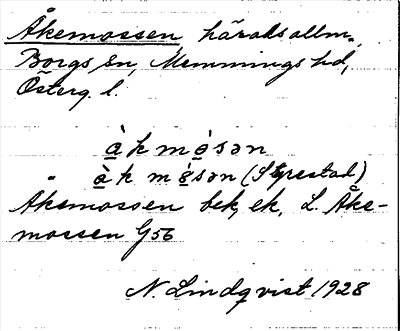 Åkemossen, häradsallm.,
Borgs sn, Memmings hd,
Österg. l.
à̱ k m ò̱ s ə n
" à̱ k m ò̱ s ə n (Styrestad)
Åkemossen bek, ek, L. Åke-
mossen G56
N. Lindqvist 1928